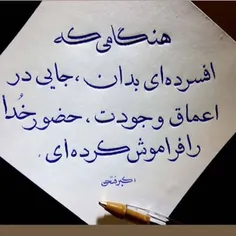 هنگامی که
افسرده‌ای بدان ، جایی در
اعماق وجودت ، حضور خُدا
را فراموش کرده‌ای .
اکبر فتحی